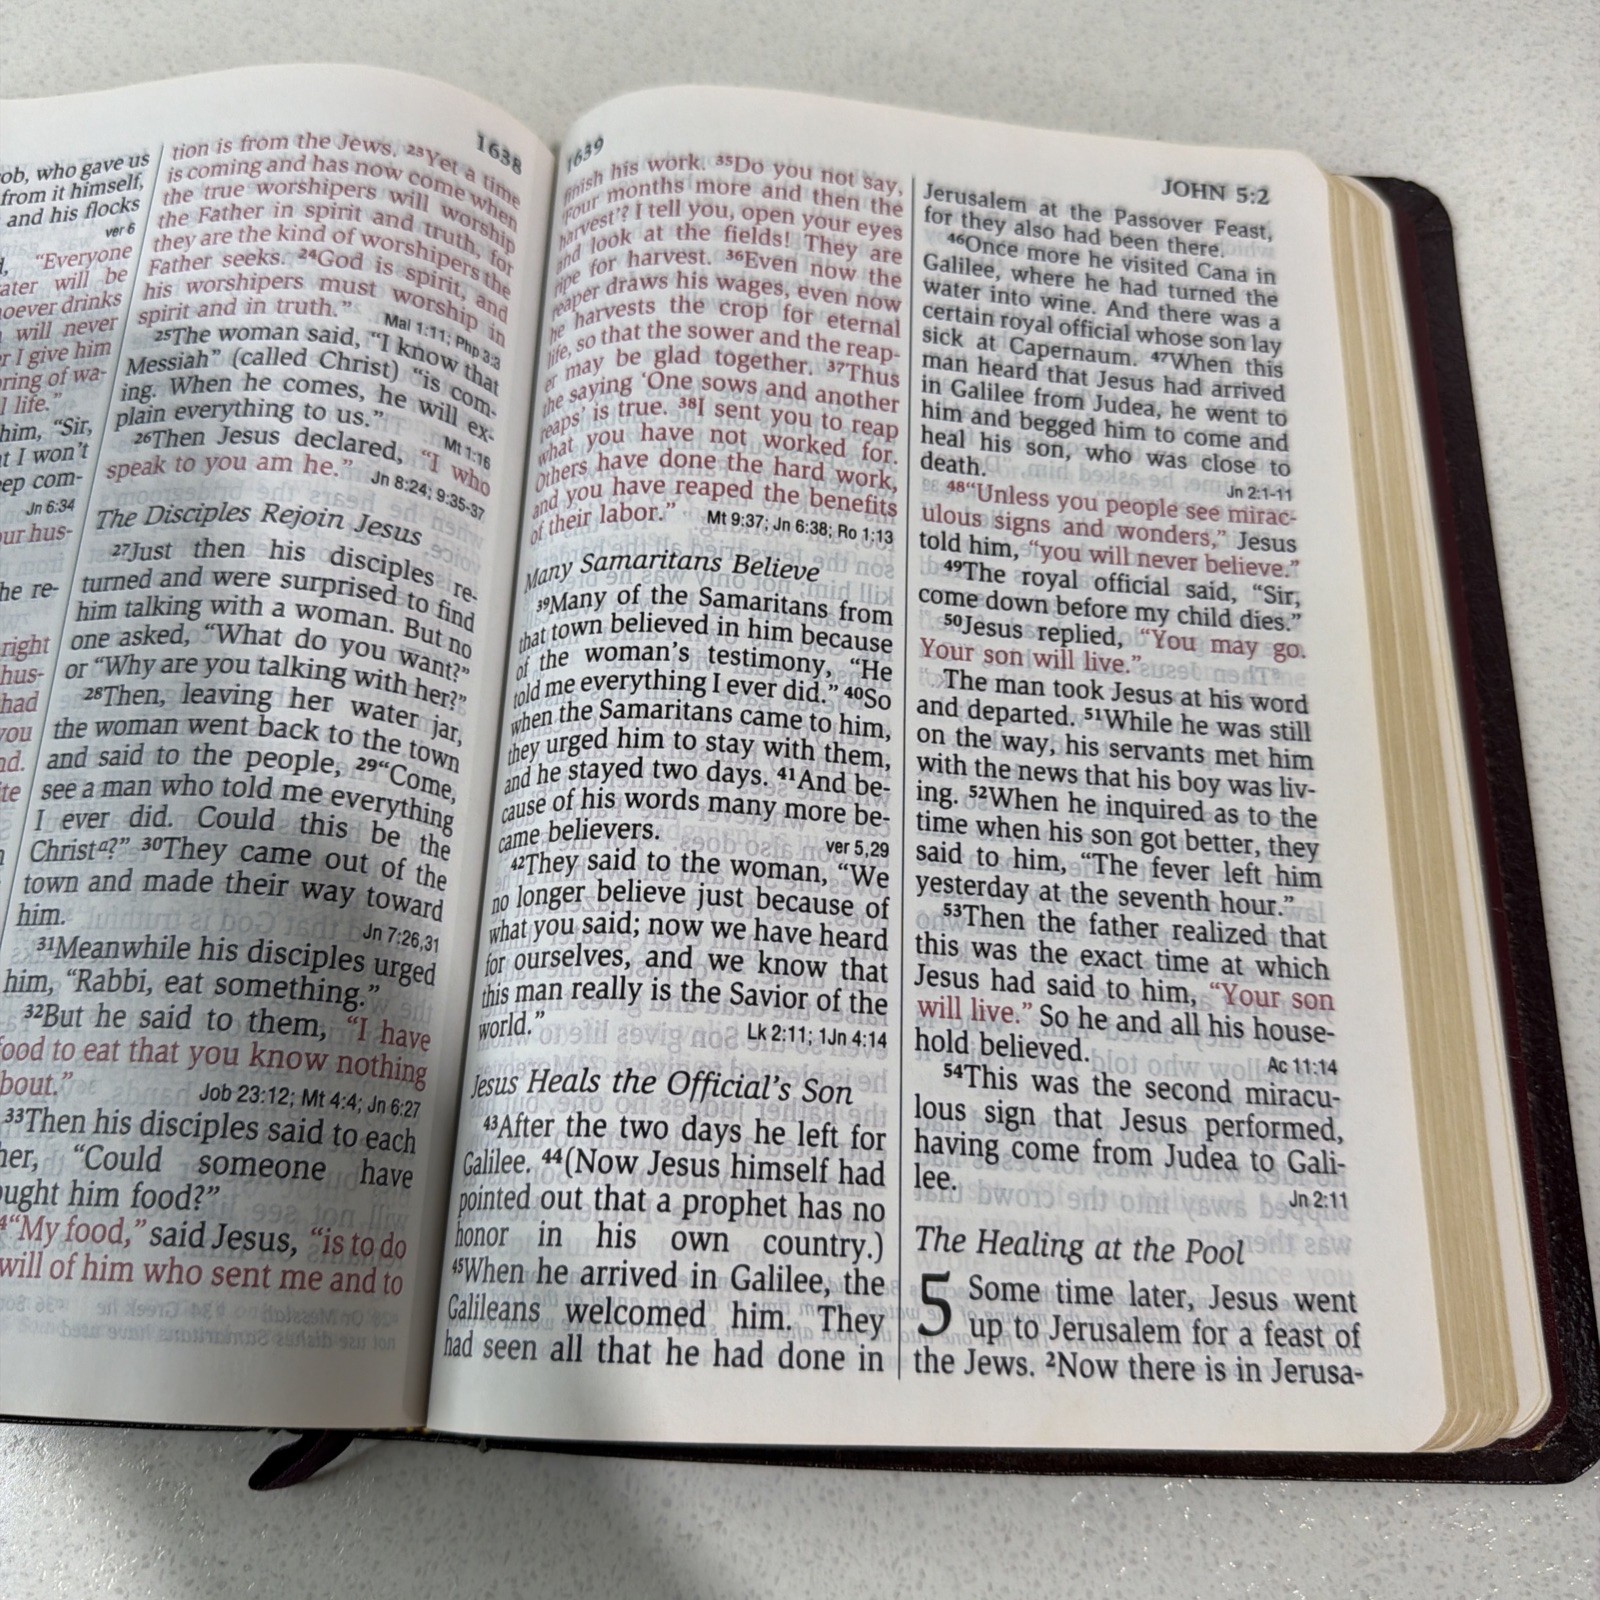 ob, who gave us
from it himself,
and his flocks
ver 6
"Everyone
ater will be
oever drinks
will never
r I give him
ring of wa-
l life."
him, "Sir,
t I won't
ep com-
Jn 6:34
ur hus-
he re-
right
hus-
had
you
nd.
ite
1638
tion is from the Jews. 23Yet a time
is coming and has now come when
the true worshipers will worship
the Father in spirit and truth, for
they are the kind of worshipers the
Father seeks. 24God is spirit, and
his worshipers must worship in
spirit and in truth."
Mal 1:11; Php 3:3
25The woman said, "I know that
Messiah" (called Christ) "is com-
ing. When he comes, he will ex-
plain everything to us."
Mt 1:16
26Then Jesus declared, "I who
speak to you am he."
Jn 8:24; 9:35-37
The Disciples Rejoin Jesus
27Just then his disciples re-
turned and were surprised to find
him talking with a woman. But no
one asked, "What do you want?"
or "Why are you talking with her?"
28Then, leaving her water jar,
the woman went back to the town
and said to the people, 29"Come,
see a man who told me everything
I ever did. Could this be the
Christa?" 30They came out of the
town and made their way toward
him.
Jn 7:26,31
31Meanwhile his disciples urged
him, "Rabbi, eat something."
32But he said to them, "I have
food to eat that you know nothing
bout."
Job 23:12; Mt 4:4; Jn 6:27
33Then his disciples said to each
her, "Could someone have
ught him food?"
4"My food," said Jesus, "is to do
will of him who sent me and to
1639
finish his work. 35Do you not say,
'Four months more and then the
harvest'? I tell you, open your eyes
and look at the fields! They are
ripe for harvest. 36Even now the
reaper draws his wages, even now
he harvests the crop for eternal
life, so that the sower and the reap-
er may be glad together. 37Thus
the saying 'One sows and another
reaps' is true. 38I sent you to reap
what you have not worked for.
Others have done the hard work,
and you have reaped the benefits
of their labor."
Mt 9:37; Jn 6:38; Ro 1:13
Many Samaritans Believe
39Many of the Samaritans from
that town believed in him because
of the woman's testimony, "He
told me everything I ever did." 40So
when the Samaritans came to him,
they urged him to stay with them,
and he stayed two days. 41And be-
cause of his words many more be-
came believers.
ver 5,29
42They said to the woman, "We
no longer believe just because of
what you said; now we have heard
for ourselves, and we know that
this man really is the Savior of the
world."
Lk 2:11; 1Jn 4:14
Jesus Heals the Official's Son
43After the two days he left for
Galilee. 44(Now Jesus himself had
pointed out that a prophet has no
honor in his own country.)
45When he arrived in Galilee, the
Galileans welcomed him. They
had seen all that he had done in
JOHN 5:2
Jerusalem at the Passover Feast,
for they also had been there.
46Once more he visited Cana in
Galilee, where he had turned the
water into wine. And there was a
certain royal official whose son lay
sick at Capernaum. 47When this
man heard that Jesus had arrived
in Galilee from Judea, he went to
him and begged him to come and
heal his son, who was close to
death.
Jn 2:1-11
48"Unless you people see mirac-
ulous signs and wonders," Jesus
told him, "you will never believe."
49The royal official said, "Sir,
come down before my child dies."
50Jesus replied, "You may go.
Your son will live."
The man took Jesus at his word
and departed. 51While he was still
on the way, his servants met him
with the news that his boy was liv-
ing. 52When he inquired as to the
time when his son got better, they
said to him, "The fever left him
yesterday at the seventh hour."
53Then the father realized that
this was the exact time at which
Jesus had said to him, "Your son
will live." So he and all his house-
hold believed.
Ac 11:14
54This was the second miracu-
lous sign that Jesus performed,
having come from Judea to Gali-
lee.
Jn 2:11
The Healing at the Pool
5 Some time later, Jesus went
up to Jerusalem for a feast of
the Jews. 2Now there is in Jerusa-